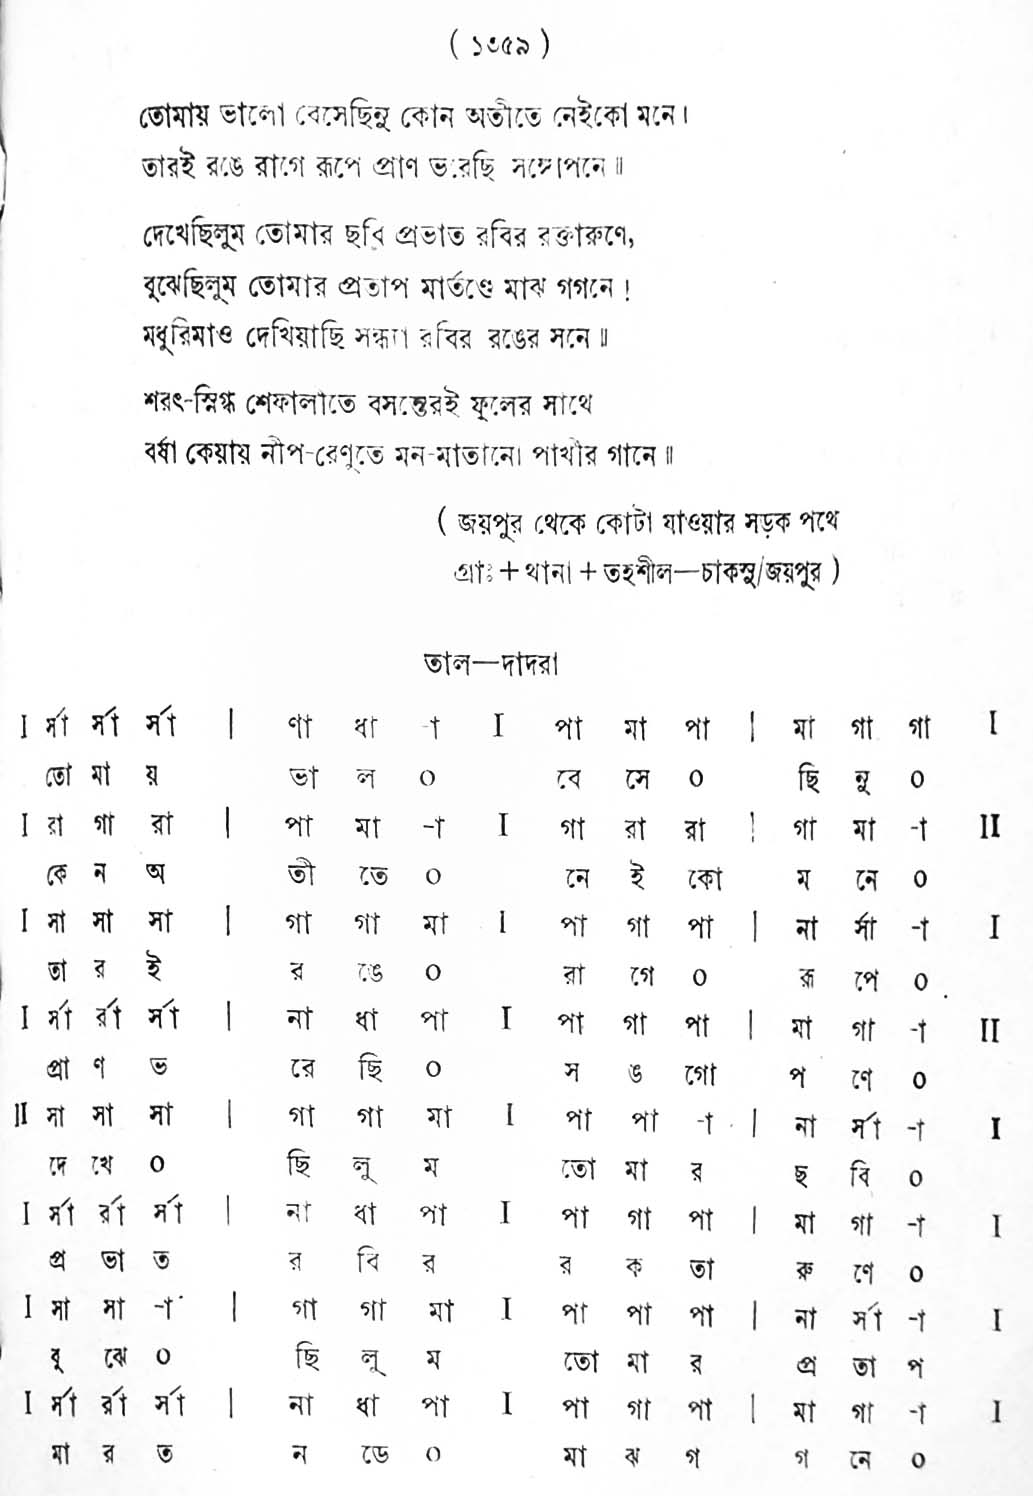 ( ১৩৫৯ )
তোমায় ভালো বেসেছিনু কোন অতীতে নেইকো মনে।
তারই রঙে রাগে রূপে প্রাণ ভ'রেছি সঙ্গোপনে॥
দেখেছিলুম তোমার ছবি প্রভাত রবির রক্তারুণে,
বুঝেছিলুম তোমার প্রতাপ মার্তণ্ডে মাঝ গগনে !
মধুরিমাও দেখিয়াছি সন্ধ্যা রবির রঙের সনে॥
শরৎ-স্নিগ্ধ শেফালাতে বসন্তেরই ফুলের সাথে
বর্ষা কেয়ায় নীপ-রেণুতে মন-মাতানো পাখীর গানে॥
( জয়পুর থেকে কোটা যাওয়ার সড়ক পথে
গ্রাঃ + থানা + তহশীল—চাকসু/জয়পুর )
তাল—দাদরা
I র্সা র্সা র্সা | ণা ধা -া I পা মা পা | মা গা গা I
তো মা য় ভা ল ০ বে সে ০ ছি নু ০
I রা গা রা | পা মা -া I গা রা রা | গা মা -া II
কে ন অ তী তে ০ নে ই কো ম নে ০
I সা সা সা | গা গা মা I পা গা পা | না র্সা -া I
তা র ই র ঙে ০ রা গে ০ রূ পে ০
I র্সা র্রা র্সা | না ধা পা I পা গা পা | মা গা -া II
প্রা ণ ভ রে ছি ০ স ঙ গো প ণে ০
II সা সা সা | গা গা মা I পা পা -া | না র্সা -া I
দে খে ০ ছি লু ম তো মা র ছ বি ০
I র্সা র্রা র্সা | না ধা পা I পা গা পা | মা গা -া I
প্র ভা ত র বি র র ক তা রু ণে ০
I সা সা -া | গা গা মা I পা পা পা | না র্সা -া I
বু ঝে ০ ছি লু ম তো মা র প্র তা প
I র্সা র্রা র্সা | না ধা পা I পা গা পা | মা গা -া I
মা র ত ন ডে ০ মা ঝ গ গ নে ০